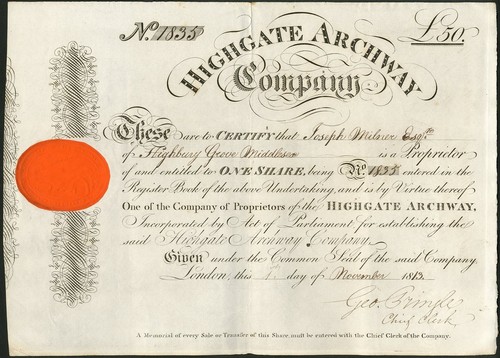 No. 1835
£50.
HIGHGATE ARCHWAY
Company
These are to CERTIFY that Joseph Milner Esqre.
of Highbury Grove Middlesex is a Proprietor
of and entitled to ONE SHARE, being No. 1835 entered in the
Register Book of the above Undertaking, and is by Virtue thereof
One of the Company of Proprietors of the HIGHGATE ARCHWAY,
Incorporated by Act of Parliament for establishing the
said Highgate Archway Company.
Given under the Common Seal of the said Company
London, this day of November 1813.
Geo. Pringle
Chief Clerk
A Memorial of every Sale or Transfer of this Share must be entered with the Chief Clerk of the Company.